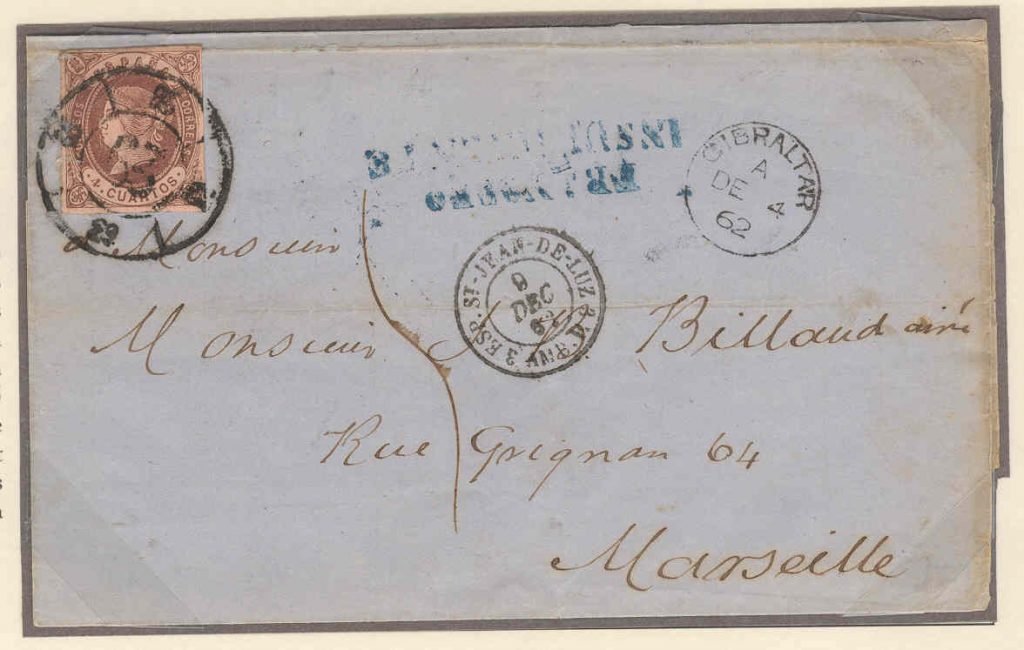 ESPAÑA
CORREOS
4 CUARTOS
29
FRANQUEO
INSUFICIENTE
GIBRALTAR
A
DE 4
62
3 ESP. ST-JEAN-DE-LUZ 3
9
DEC
62
à Monsieur
Monsieur Billaud ainé
Rue Grignan 64
Marseille